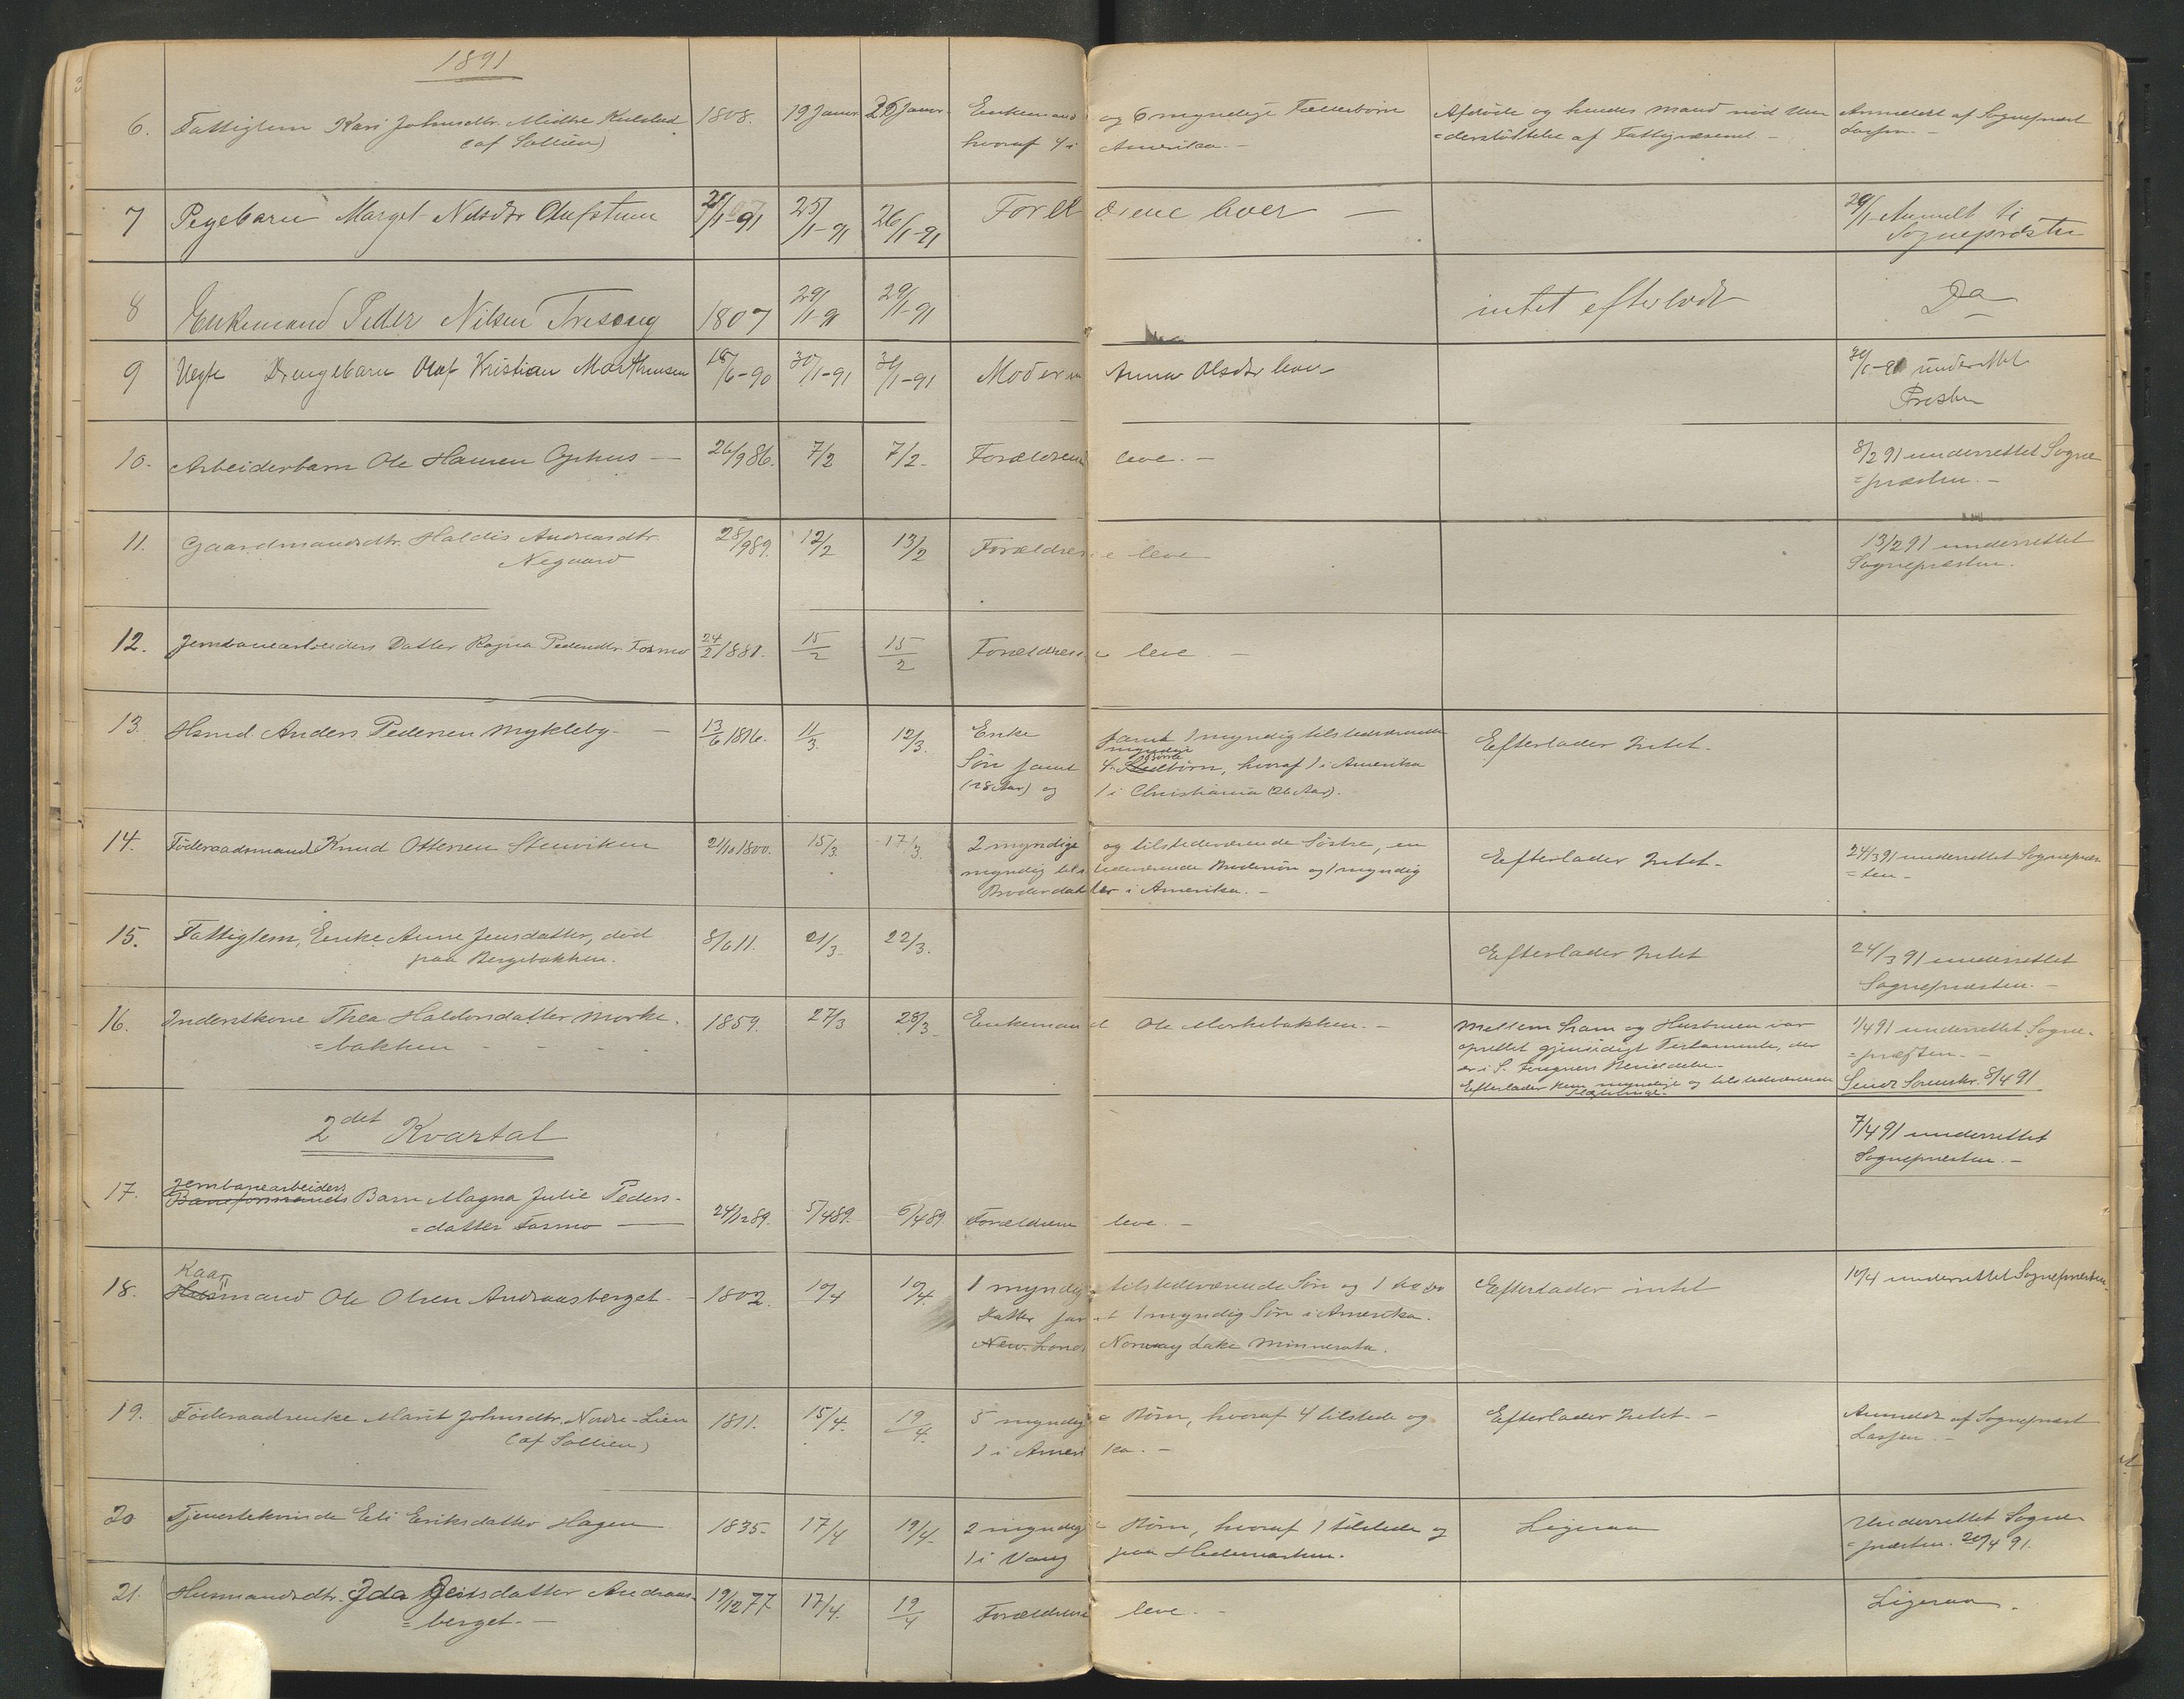 1891
6. Fattiglem Kari Johnsdtr. Midtre Kulstad 1808. 19 Januar 26 Januar. Enkemand og 6 myndige Fællesbørn Afdøde og hendes Mand nød Un Anmeldt af Sogneprest
(af Sollien) hvoraf 4 i Amerika. - =derstøttelse af Fattigvæsenet - Lassen. -
7 Pegebarn Marget Nilsdtr Olufstuen 21/1-91 25/1-91 26/1-91 Forældrene lever — 29/1 Anmelt ti
Sognepræsten
8 Enkemand Peder Nilsen Tresong 1807 29/1-91 29/1-91 intet efterladt Do
9 Uegte Drengebarn Olaf Kristian Marthinsen 18/6-90 30/1-91 30/1-91 Moderen Anna Olsdtr lever 30/1-91 underrettet
Presten
10. Arbeiderbarn Ole Hansen Ophus — 26/9 86. 7/2 7/2 - Forældrene leve. - 8/2 91 underrettet Sogne
=præsten. -
11. Gaardmandsdtr. Haldis Andreasdtr. 28/9 89. 12/2 13/2 Forældrene leve 13/2 91 underrettet
Negaard Sognepræsten.
12. Jernbanearbeiders Datter Ragna Pedersdtr. Formo 24/2 1881. 15/2 15/2 Forældrene leve. -
13. Hsmd. Anders Pedersen Mykleby - — 13/6 1816. 11/3. 12/3. Enke samt 1 myndig tilstedeværende Efterlader Intet -
myndige
Søn samt 4 børn, hvoraf 1 i Amerika
(28 Aar) og 1 i Christiania (26 Aar).
14. Føderaadsmand Knud Ottersen Stenviken 21/10 1800. 15/3. 17/3. 2 myndige og tilstedeværende Søstre, en Efterlader Intet - 24/3 91 underrettet Sognepræs
myndig tilstedeværende Brodersøn og 1 myndig =ten -
Broderdatter i Amerika. -
15. Fattiglem, Enke Anne Jensdatter, død 8/6 11. 21/3 - 22/3. Efterlader Intet 24/3 91 underrettet
paa Bergebakken. Sognepræsten. -
16. Inderstkone Thea Haldorsdatter Morke- 1859. 27/3 28/3 - Enkemand Ole Morkebakken. - Mellem ham og Hustruen var 1/4 91 underrettet Sogne-
=bakken - - - oprettet gjensidigt Testamente, der =præsten. -
er i S. Fougners Besiddelse -
Efterlader kun myndige og tilstedeværende Sendt Sorenskr. 8/4 91
Slægtninge -
2det Kvartal 7/4 91 underrettet
Sognepræsten. -
Jernbanearbeiders
17. Baneformands Barn Magna Julie Peders-
=datter Formo — 24/12 89. 5/4 89. 6/4 89 Forældrene leve. -
Kaar
18. Husmand Ole Olsen Andraasberget - 1802. 10/4 10/4. 1 myndig tilstedeværende Søn og 1 do do Efterlader intet 10/4 underrettet Sognepræsten.
Datter samt 1 myndig Søn i Amerika.
New. Lond. Norway Lake Minnesota.
19. Føderaadsenke Marit Johnsdtr. Nordre-Lien 1811. 15/4. 19/4. 5 myndige Børn, hvoraf 4 tilstede og Efterlader Intet. - Anmeldt af Sogneprest
(af Sollien) 1 i Amerika. - Lassen. -
20 Tjenestekvinde Eli Eriksdatter Hagen 1835 - 17/4 19/4 - 2 myndige Børn, hvoraf 1 tilstede og Ligesaa Underrettet Sogne-
1 i Vang paa Hedemarken. =præsten. 20/4 91.
21. Husmandsdtr. Ida Jensdatter Andraas- 19/12 77 17/4. 19/4 Forældrene leve. - Ligesaa.
=berget. -